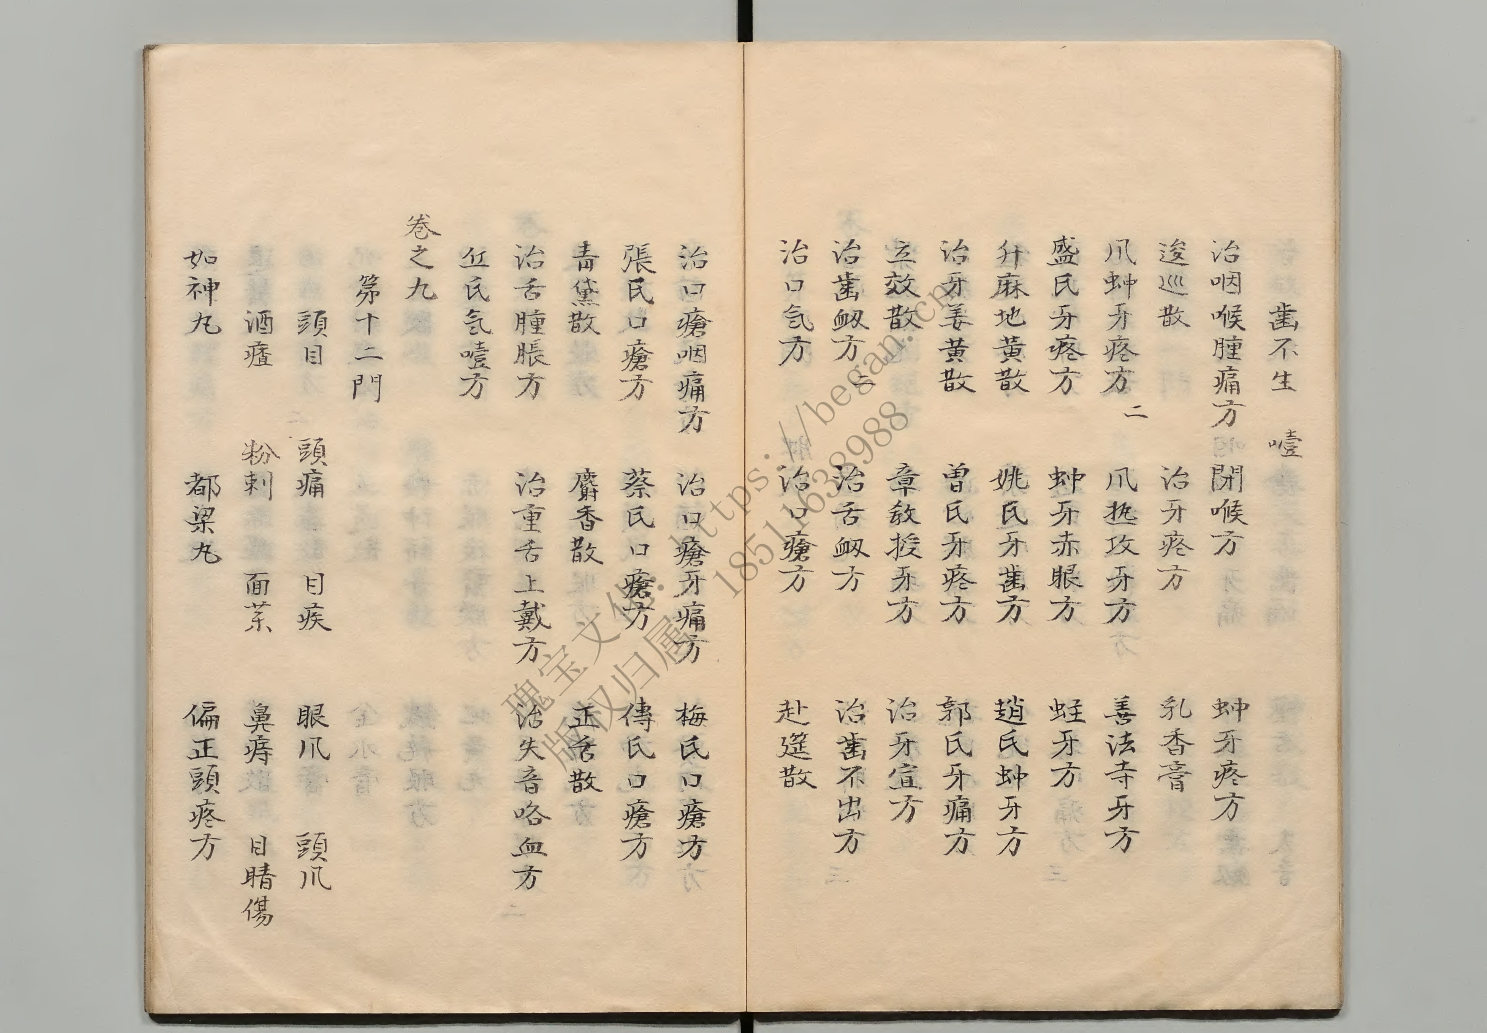 齒不生　噎
治咽喉腫痛方　閉喉方　蚛牙疼方
逡巡散　治牙疼方　乳香膏
风蚛牙疼方二　风热攻牙方　善法寺牙方
盛氏牙疼方　蚛牙赤眼方　蛀牙方
升麻地黃散　姚氏牙齒方　趙氏蚛牙方
治牙姜黃散　曾氏牙疼方　郭氏牙痛方
立效散　章教授牙方　治牙宣方
治齒衂方二　治舌衂方　治齒不出方
治口氣方　治口瘡方　赴筵散
治口瘡咽痛方　治口瘡牙痛方　梅氏口瘡方
張氏口瘡方　蔡氏口瘡方　傳氏口瘡方
青黛散　麝香散　正舌散
治舌腫脹方　治重舌上戴方　治失音咯血方
丘氏氣噎方
卷之九
第十二門
頭目　頭痛　目疾　眼风　頭风
酒齄　粉刺　面䒷　鼻痔　目睛傷
如神丸　都梁丸　偏正頭疼方
瑰宝文化：https://began.cn
版权归属 18511638988